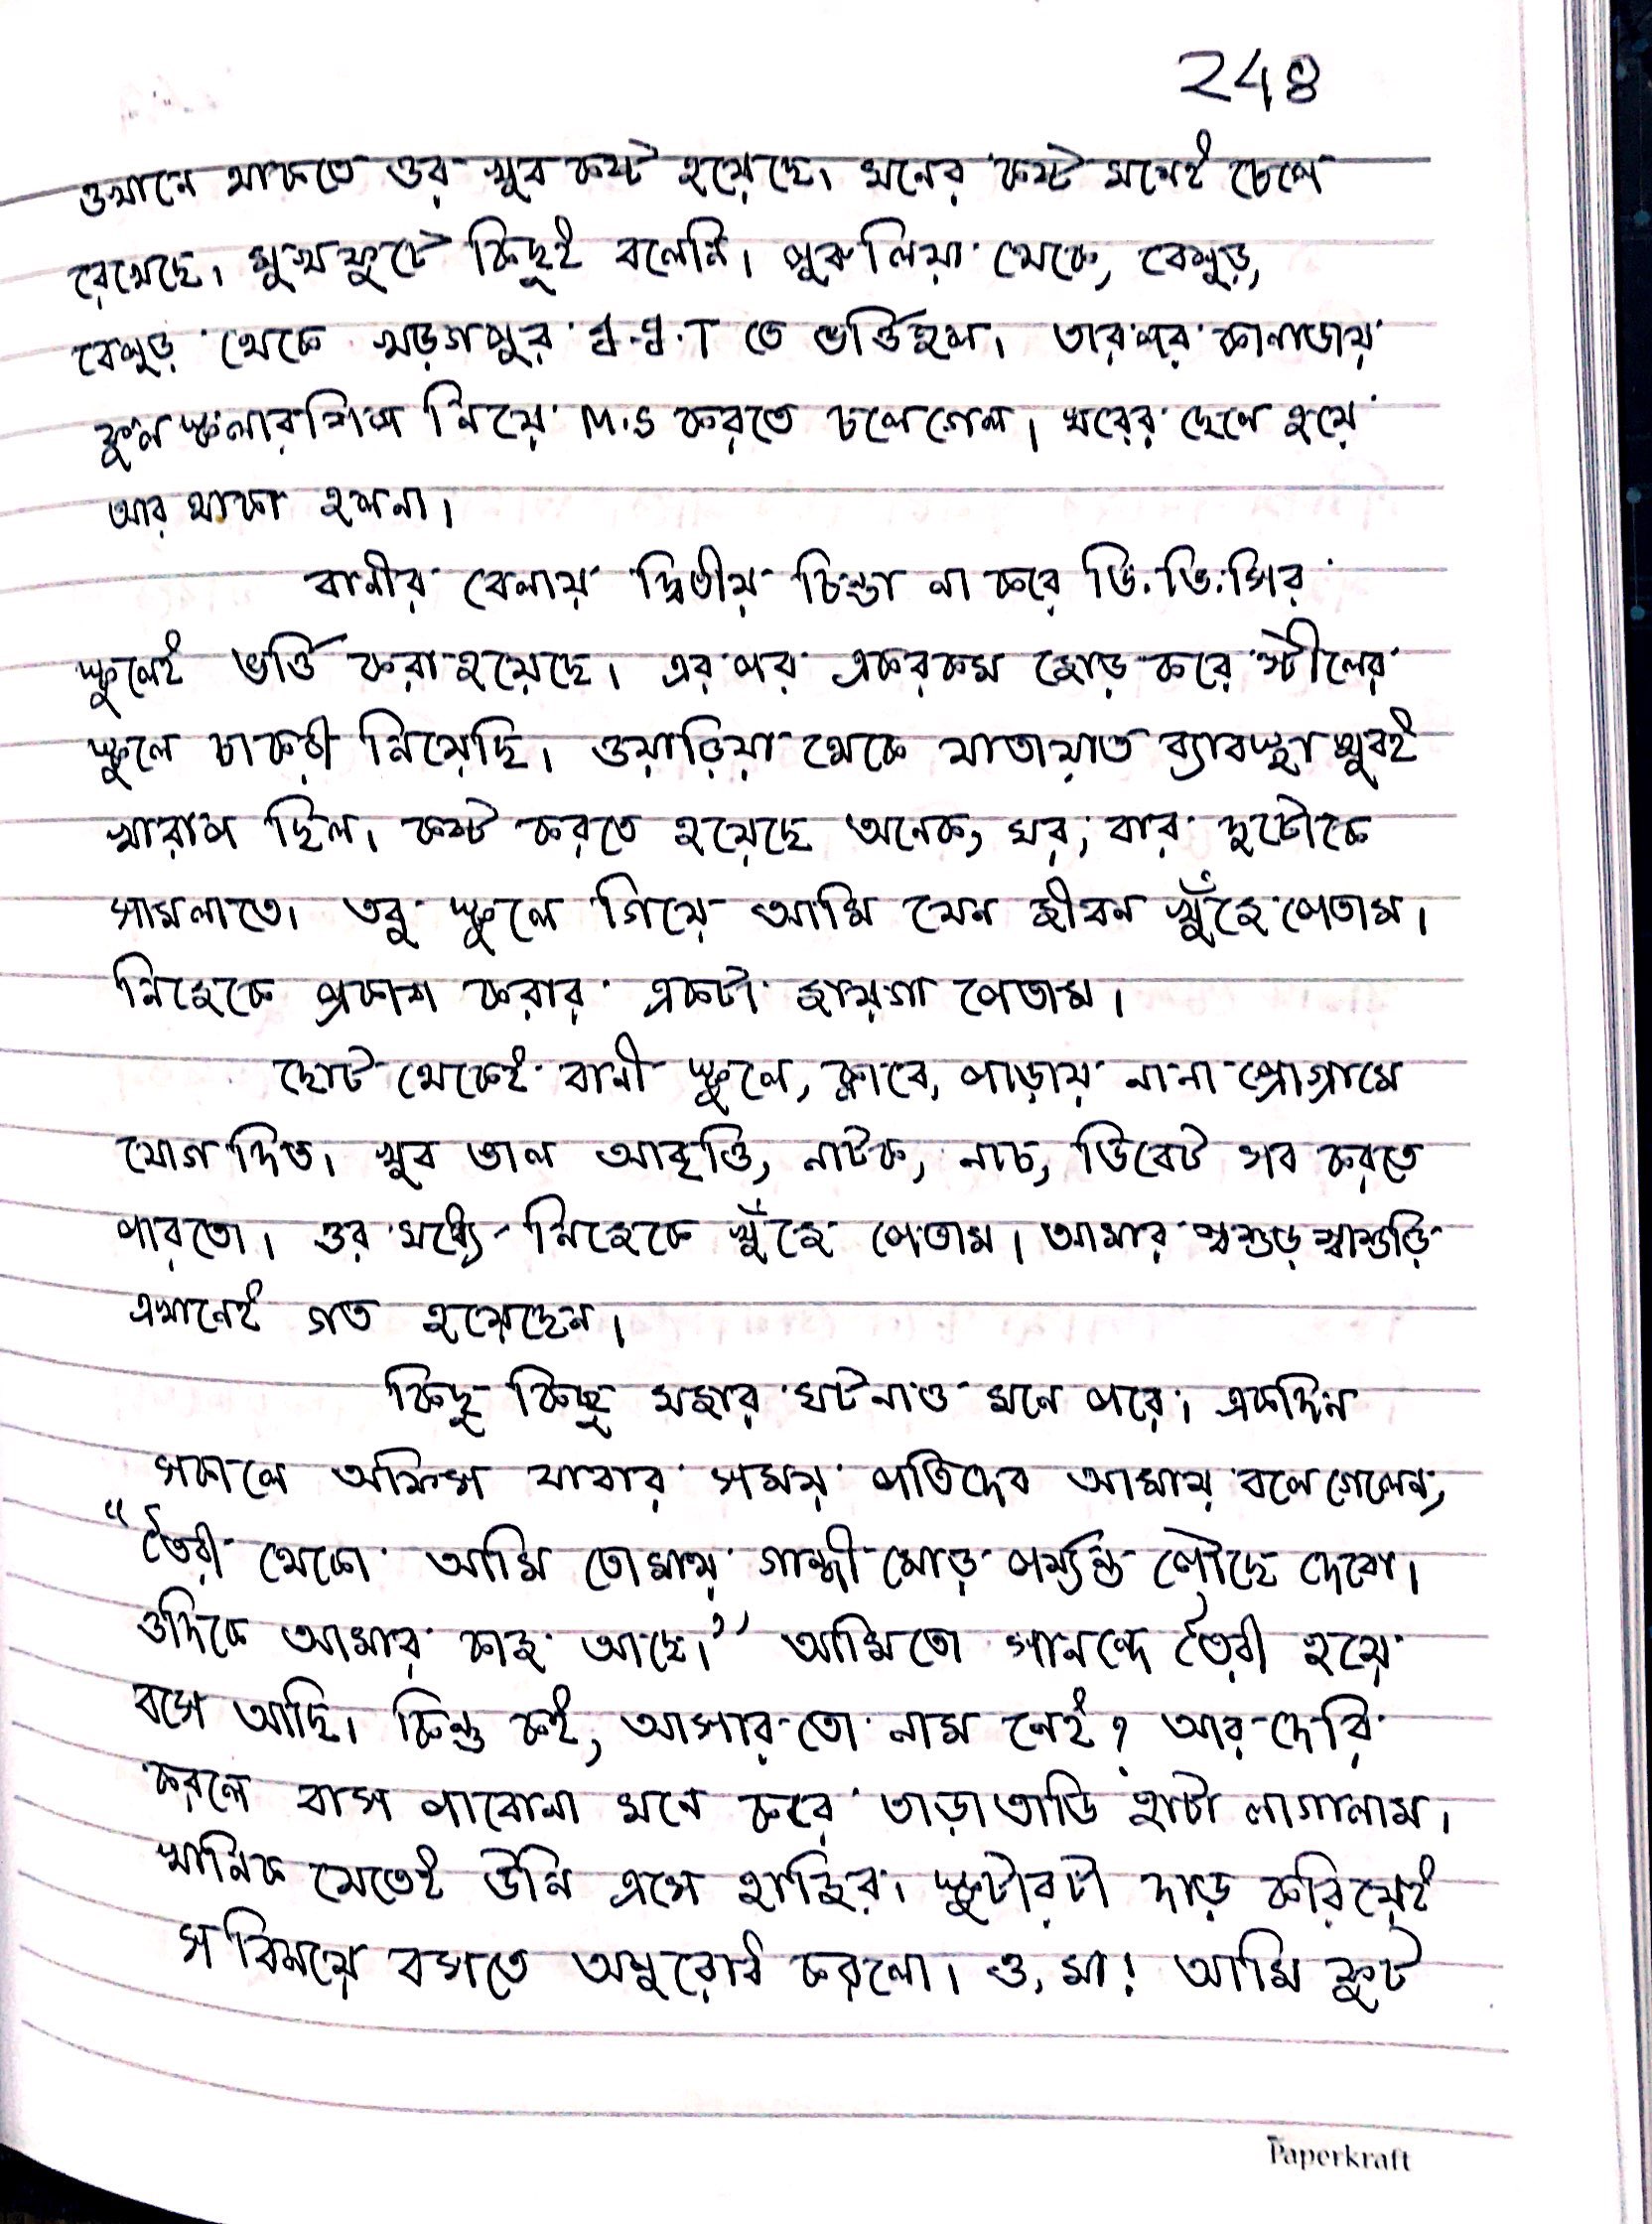 248
ওখানে থাকতে ওর খুব কষ্ট হয়েছে। মনের কষ্ট মনেই চেপে
রেখেছে। মুখফুটে কিছুই বলেনি। পুরুলিয়া থেকে, বেলুড়,
বেলুড় থেকে খড়গপুর I.I.T তে ভর্ত্তি হল। তারপর কানাডায়
ফুল স্কলারশিপ নিয়ে M.S করতে চলে গেল। ঘরের ছেলে হয়ে
আর থাকা হলনা।
বানীর বেলায় দ্বিতীয় চিন্তা না করে ডি.ভি.সির
স্কুলেই ভর্ত্তি করা হয়েছে। এর পর একরকম জোড় করে স্টীলের
স্কুলে চাকরী নিয়েছি। ওয়ারিয়া থেকে যাতায়াত ব্যাবস্থা খুবই
খারাপ ছিল। কষ্ট করতে হয়েছে অনেক, ঘর, বার দুটোকে
সামলাতে। তবু স্কুলে গিয়ে আমি যেন জীবন খুঁজে পেতাম।
নিজেকে প্রকাশ করার একটা জায়গা পেতাম।
ছোট থেকেই বানী স্কুলে, ক্লাবে, পাড়ায় নানা প্রোগ্রামে
যোগ দিত। খুব ভাল আবৃত্তি, নাটক, নাচ, ডিবেট সব করতে
পারতো। ওর মধ্যে নিজেকে খুঁজে পেতাম। আমার শ্বশুড় শ্বাশুড়ি
এখানেই গত হয়েছেন।
কিছু কিছু মজার ঘটনাও মনে পরে। একদিন
সকালে অফিস যাবার সময় পতিদেব আমায় বলে গেলেন,
“তৈরী থেকো আমি তোমায় গান্ধী মোড় পর্য্যন্ত পৌছে দেবো।
ওদিকে আমার কাজ আছে।” আমিতো সানন্দে তৈরী হয়ে
বসে আছি। কিন্তু কই, আসার তো নাম নেই? আর দেরি
করলে বাস পাবোনা মনে করে তাড়াতাড়ি হাটা লাগালাম।
খানিক যেতেই উনি এসে হাজির। স্কুটারটা দাড় করিয়েই
সবিনয়ে বসতে অনুরোধ করলো। ও, মা! আমি ফুট
Paperkraft